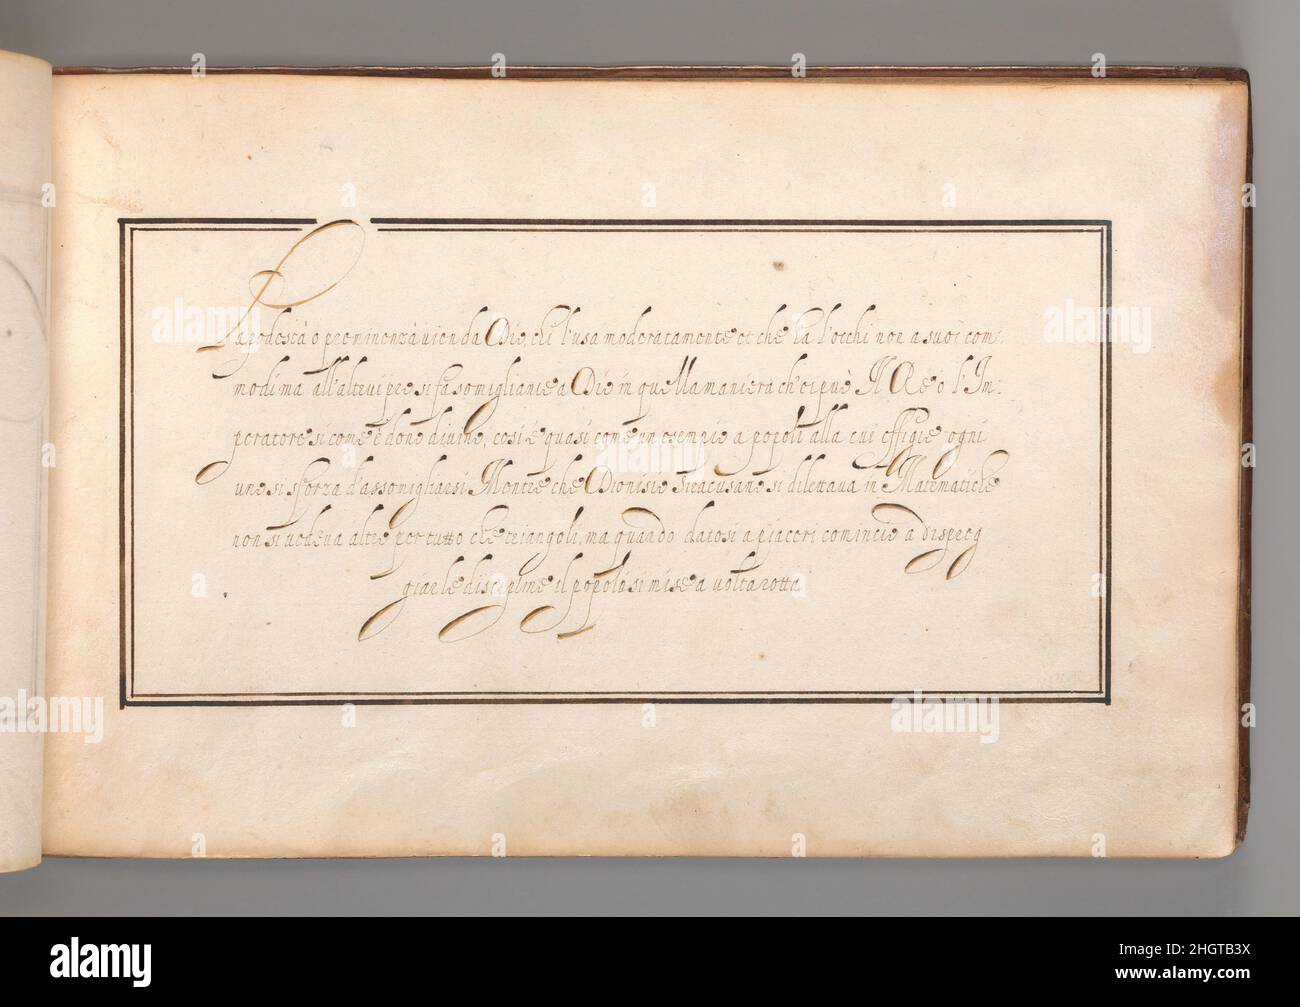 La podestà o preminenza vien da Dio, chi l'usa moderatamente et che ha l'occhi non a suoi com:
modi ma all'altrui pro si fa somigliante a Dio in quella maniera ch'ei può Il Re o l'Im:
peratore si come è dono divino, cosi è quasi come un esempio a popoli alla cui effigie ogni
uno si sforza d'assomigliarsi Mentre che Dionisio Siracusano si dilettava in Matematiche
non si vedeva altro per tutto che triangoli, ma quando datosi a piaceri cominciò a dispreg
giar le discipline il popolo si mise a volta rotta
alamy
Image ID: 2HGTB3X
www.alamy.com